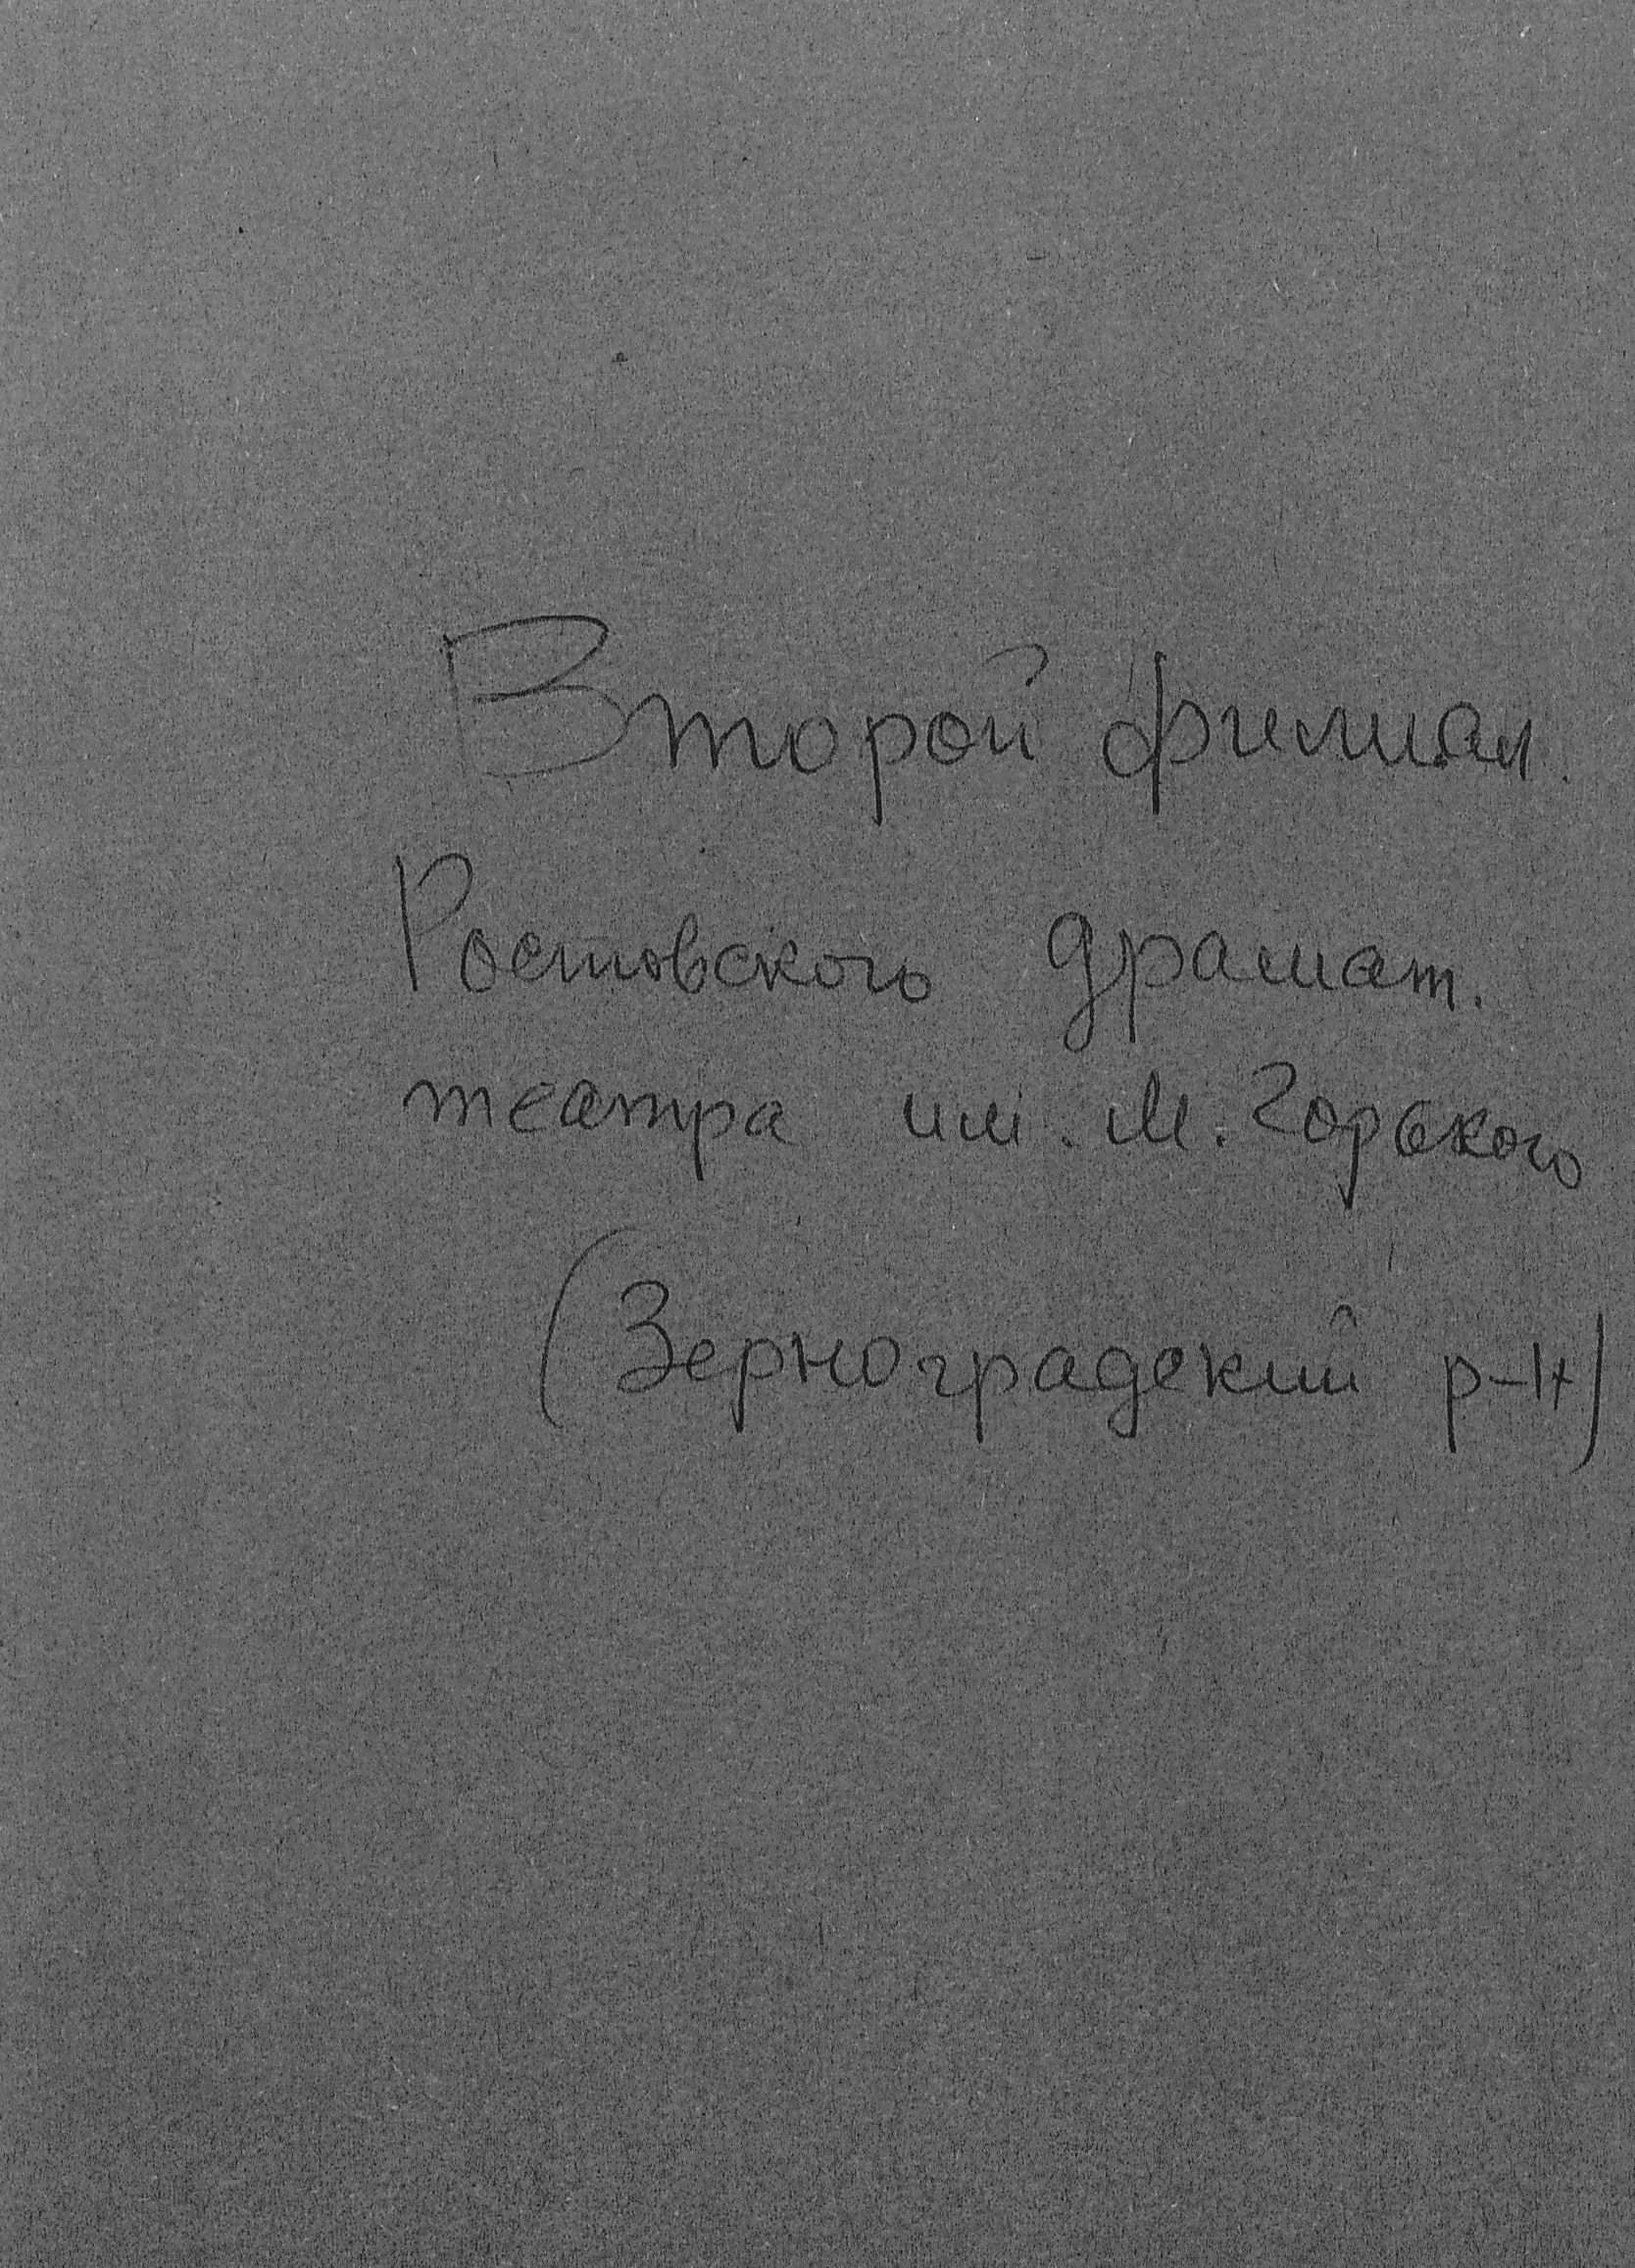 Второй филиал
Ростовского драмат.
театра им. М. Горького
(Зерноградский р-н)